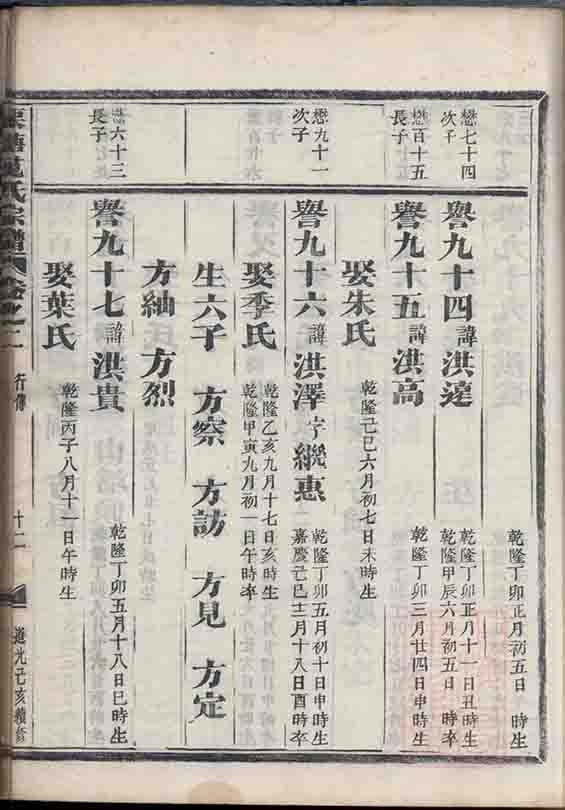 乾隆丁卯正月初五日 時生
懋七十四
次子
譽九十四諱洪達
乾隆丁卯正月十一日丑時生
乾隆甲辰六月初五日 時卒
懋百十五
長子
譽九十五諱洪高
乾隆丁卯三月廿四日申時生
娶朱氏
乾隆己巳六月初七日未時生
懋九十一
次子
譽九十六諱洪澤字繼惠
乾隆丁卯五月初十日申時生
嘉慶己巳十二月十八日酉時卒
娶季氏
乾隆乙亥九月十七日亥時生
乾隆甲寅九月初一日午時卒
生六子 方察 方訪 方見 方定
方紬 方烈
懋六十三
長子
譽九十七諱洪貴
乾隆丁卯五月十八日巳時生
娶葉氏
乾隆丙子八月十一日午時生
氏宗譜 卷之二 行傳 十二 道光己亥續修